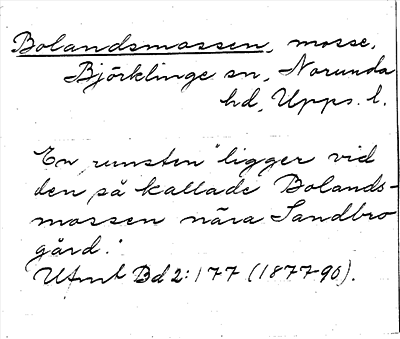 Bolandsmossen, mosse,
Björklinge sn, Norunda
hd, Upps. l.
En „runsten” ligger vid
den så kallade Bolands-
mossen nära Sandbro
gård.”
Utmt Bd 2:177 (1877-90).